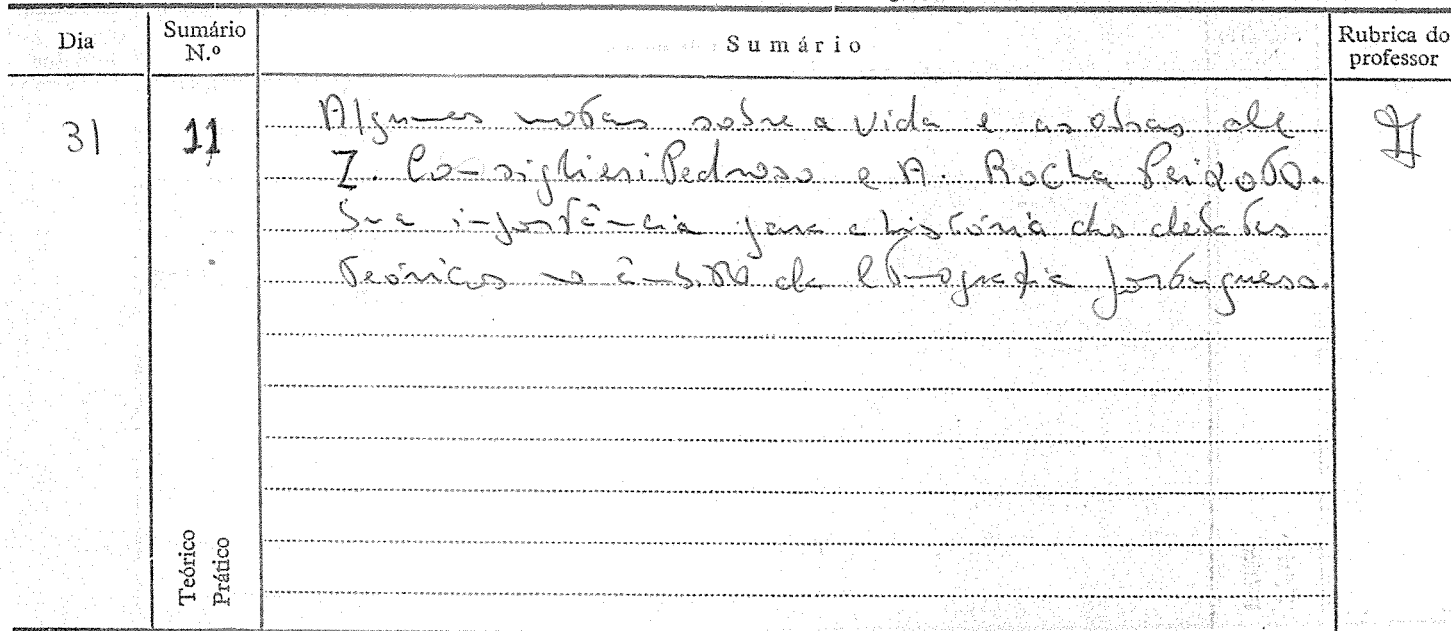 Dia
Sumário N.º
Sumário
Rubrica do professor
31
11
Algumas notas sobre a vida e as obras de
Z. Consiglieri Pedroso e A. Rocha Peixoto.
Sua importância para a história dos debates
teóricos no âmbito da etnografia portuguesa.
Teórico
Prático